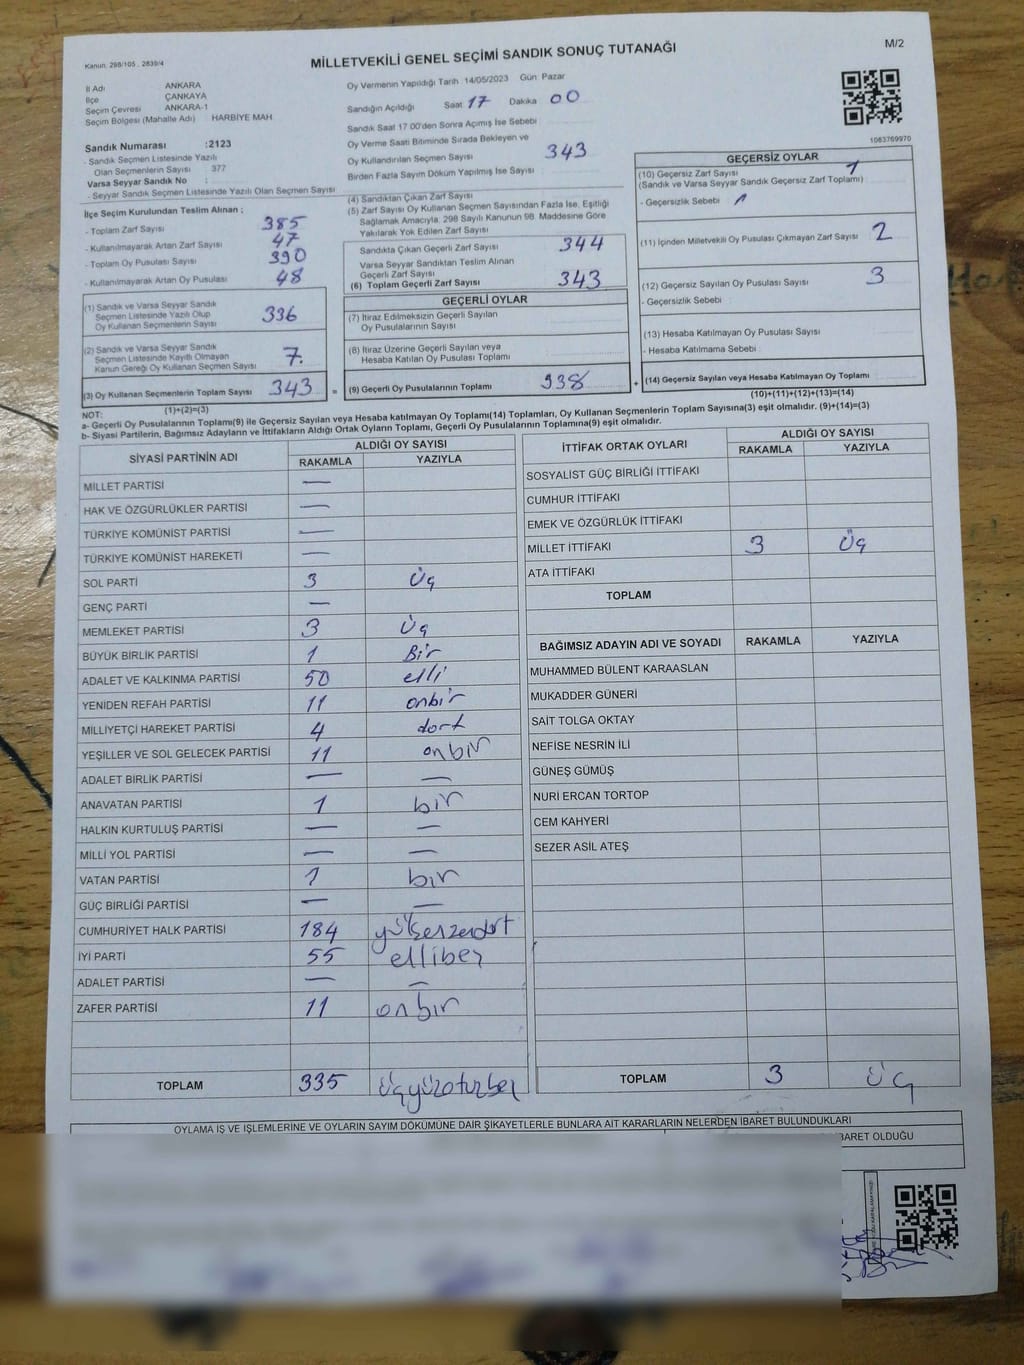 M/2
Kanun, 298/105 , 2839/4
MİLLETVEKİLİ GENEL SEÇİMİ SANDIK SONUÇ TUTANAĞI
İl Adı ANKARA
İlçe ÇANKAYA
Seçim Çevresi ANKARA-1
Seçim Bölgesi (Mahalle Adı) HARBİYE MAH
Sandık Numarası :2123
- Sandık Seçmen Listesinde Yazılı
Olan Seçmenlerin Sayısı : 377
Varsa Seyyar Sandık No :
- Seyyar Sandık Seçmen Listesinde Yazılı Olan Seçmen Sayısı
Oy Vermenin Yapıldığı Tarih 14/05/2023 Gün Pazar
Sandığın Açıldığı Saat 17 Dakika 00
Sandık Saat 17.00'den Sonra Açımış İse Sebebi
Oy Verme Saati Bitiminde Sırada Bekleyen ve
Oy Kullandırılan Seçmen Sayısı 343
Birden Fazla Sayım Döküm Yapılmış İse Sayısı
1063769970
İlçe Seçim Kurulundan Teslim Alınan ;
- Toplam Zarf Sayısı 385
- Kullanılmayarak Artan Zarf Sayısı 47
- Toplam Oy Pusulası 390
- Kullanılmayarak Artan Oy Pusulası 48
(1) Sandık ve Varsa Seyyar Sandık
Seçmen Listesinde Yazılı Olup
Oy Kullanan Seçmenlerin Sayısı 336
(2) Sandık ve Varsa Seyyar Sandık
Seçmen Listesinde Kayıtlı Olmayan
Kanun Gereği Oy Kullanan Seçmen Sayısı 7.
(3) Oy Kullanan Seçmenlerin Toplam Sayısı 343 =
(1)+(2)=(3)
(4) Sandıktan Çıkan Zarf Sayısı
(5) Zarf Sayısı Oy Kullanan Seçmen Sayısından Fazla İse, Eşitliği
Sağlamak Amacıyla, 298 Sayılı Kanunun 98. Maddesine Göre
Yakılarak Yok Edilen Zarf Sayısı
Sandıkta Çıkan Geçerli Zarf Sayısı 344
Varsa Seyyar Sandıktan Teslim Alınan
Geçerli Zarf Sayısı
(6) Toplam Geçerli Zarf Sayısı 343
GEÇERLİ OYLAR
(7) İtiraz Edilmeksizin Geçerli Sayılan
Oy Pusulalarının Sayısı
(8) İtiraz Üzerine Geçerli Sayılan veya
Hesaba Katılan Oy Pusulası Toplamı
(9) Geçerli Oy Pusulalarının Toplamı 338 +
GEÇERSİZ OYLAR
(10) Geçersiz Zarf Sayısı 1
(Sandık ve Varsa Seyyar Sandık Geçersiz Zarf Toplamı)
- Geçersizlik Sebebi
(11) İçinden Milletvekili Oy Pusulası Çıkmayan Zarf Sayısı 2
(12) Geçersiz Sayılan Oy Pusulası Sayısı 3
- Geçersizlik Sebebi :
(13) Hesaba Katılmayan Oy Pusulası Sayısı
- Hesaba Katılmama Sebebi :
(14) Geçersiz Sayılan veya Hesaba Katılmayan Oy Toplamı
(10)+(11)+(12)+(13)=(14)
NOT:
a- Geçerli Oy Pusulalarının Toplamı(9) ile Geçersiz Sayılan veya Hesaba katılmayan Oy Toplamı(14) Toplamları, Oy Kullanan Seçmenlerin Toplam Sayısına(3) eşit olmalıdır. (9)+(14)=(3)
b- Siyasi Partilerin, Bağımsız Adayların ve İttifakların Aldığı Ortak Oyların Toplamı, Geçerli Oy Pusulalarının Toplamına(9) eşit olmalıdır.
SİYASİ PARTİNİN ADI ALDIĞI OY SAYISI
RAKAMLA YAZIYLA
MİLLET PARTİSİ —
HAK VE ÖZGÜRLÜKLER PARTİSİ —
TÜRKİYE KOMÜNİST PARTİSİ —
TÜRKİYE KOMÜNİST HAREKETİ —
SOL PARTİ 3 üç
GENÇ PARTİ —
MEMLEKET PARTİSİ 3 üç
BÜYÜK BİRLİK PARTİSİ 1 Bir
ADALET VE KALKINMA PARTİSİ 50 elli
YENİDEN REFAH PARTİSİ 11 onbir
MİLLİYETÇİ HAREKET PARTİSİ 4 dort
YEŞİLLER VE SOL GELECEK PARTİSİ 11 onbir
ADALET BİRLİK PARTİSİ — —
ANAVATAN PARTİSİ 1 bir
HALKIN KURTULUŞ PARTİSİ — —
MİLLİ YOL PARTİSİ — —
VATAN PARTİSİ 1 bir
GÜÇ BİRLİĞİ PARTİSİ — —
CUMHURİYET HALK PARTİSİ 184
İYİ PARTİ 55 ellibeş
ADALET PARTİSİ — —
ZAFER PARTİSİ 11 onbir
TOPLAM 335
İTTİFAK ORTAK OYLARI ALDIĞI OY SAYISI
RAKAMLA YAZIYLA
SOSYALİST GÜÇ BİRLİĞİ İTTİFAKI
CUMHUR İTTİFAKI
EMEK VE ÖZGÜRLÜK İTTİFAKI
MİLLET İTTİFAKI 3 üç
ATA İTTİFAKI
TOPLAM
BAĞIMSIZ ADAYIN ADI VE SOYADI RAKAMLA YAZIYLA
MUHAMMED BÜLENT KARAASLAN
MUKADDER GÜNERİ
SAİT TOLGA OKTAY
NEFİSE NESRİN İLİ
GÜNEŞ GÜMÜŞ
NURİ ERCAN TORTOP
CEM KAHYERİ
SEZER ASİL ATEŞ
TOPLAM 3 üç
OYLAMA İŞ VE İŞLEMLERİNE VE OYLARIN SAYIM DÖKÜMÜNE DAİR ŞİKAYETLERLE BUNLARA AİT KARARLARIN NELERDEN İBARET BULUNDUKLARI
BARET OLDUĞU